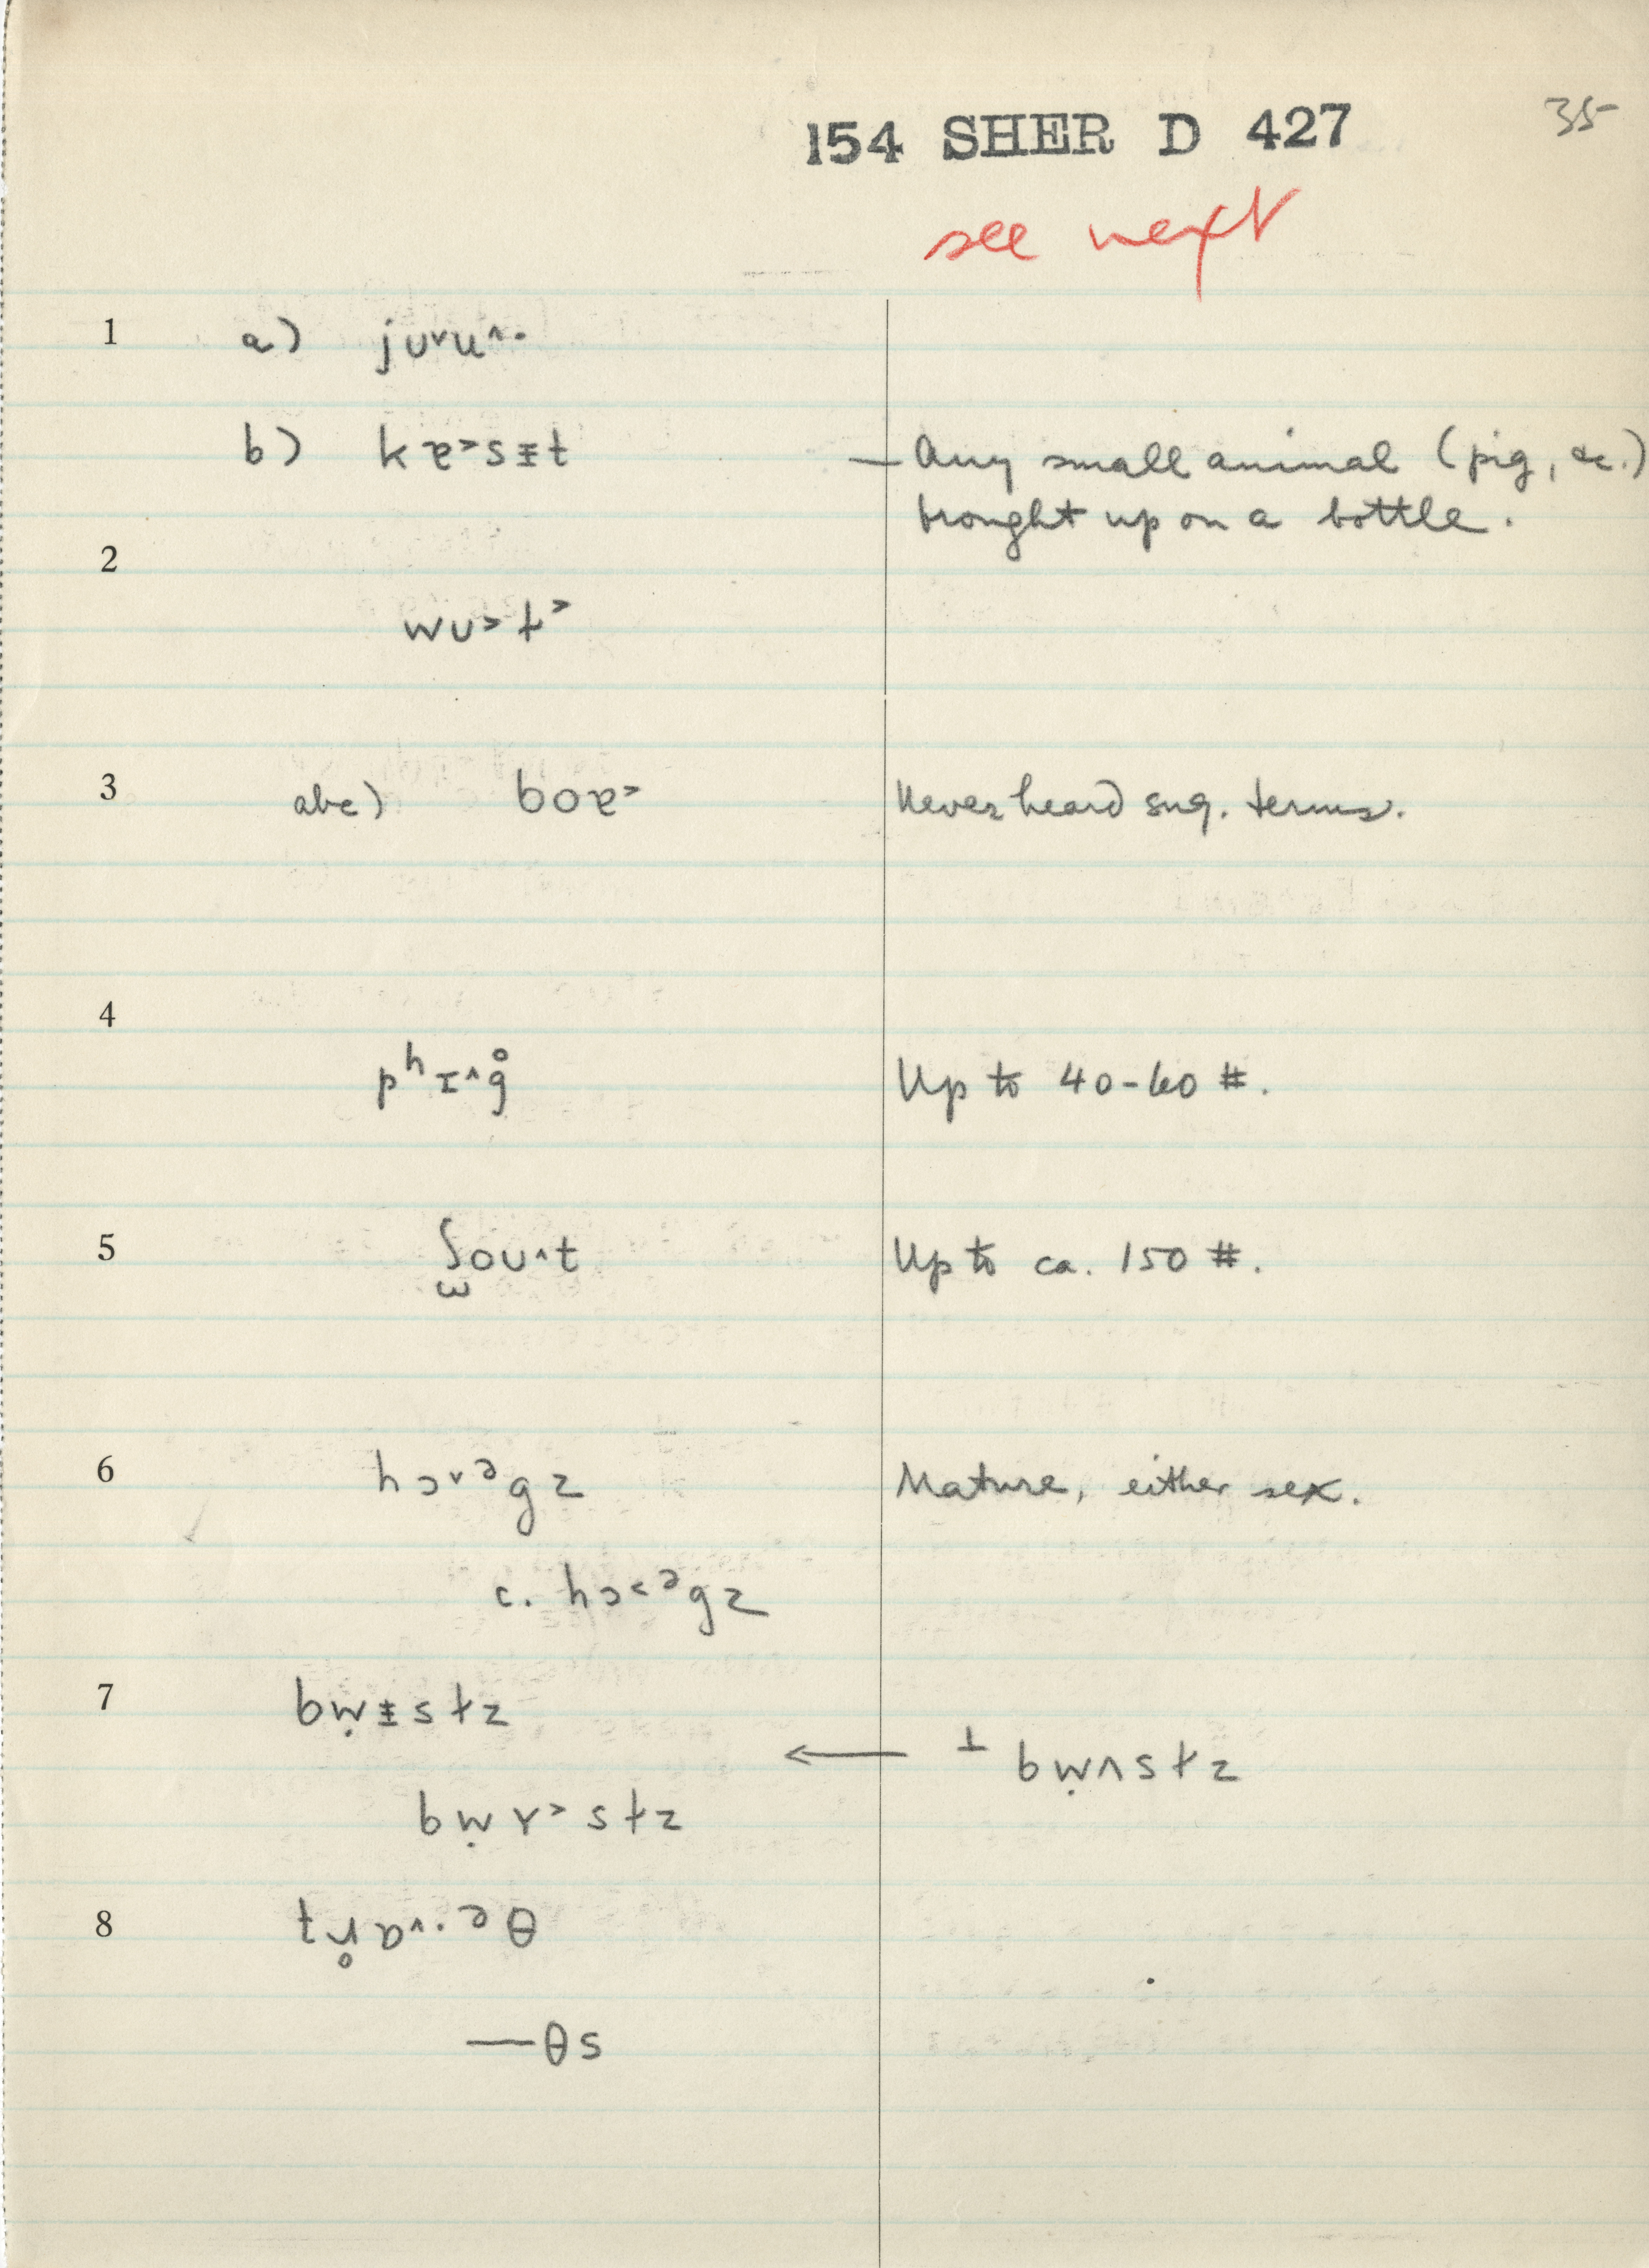 154 SHER D 427 35
see next
1 a) jʊ˅u˄·
b) kɐ˃sɪ̵t — Any small animal (pig, &c.)
brought up on a bottle.
2
wʊ˃t˃
3 abc) boɐ˃ Never heard sug. terms.
4
pʰɪ˄g̊ Up to 40-60 #.
5 ʃ̫oʊ˄t Up to ca. 150 #.
6 hɔ˅ᵊgz Mature, either sex.
c. hɔ˂ᵊgz
7 bẉɪ̵stz
← ⊥ bẉʌstz
bẉɤ˃stz
8 tɹ̥ɒ˄·ᵊθ
—θs